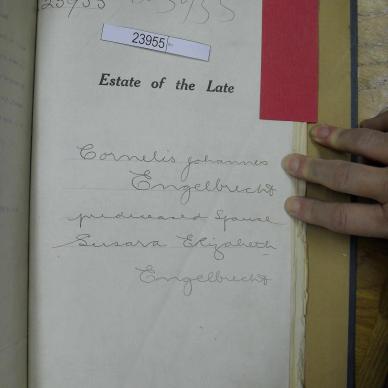 23955
23955
Estate of the Late
Cornelis Johannes
Engelbrecht
predeceased Spouse
Susara Elizabeth
Engelbrecht